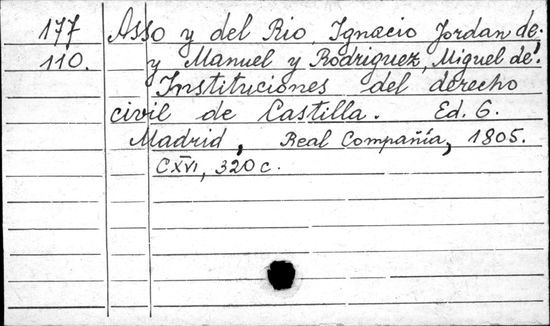 177 Asso y del Rio, Ignacio Jordan de;
110. y Manuel y Rodriguez, Miguel de.
Instituciones del derecho
civil de Castilla. Ed. 6.
Madrid, Real Compañía, 1805.
CXVI, 320 c.